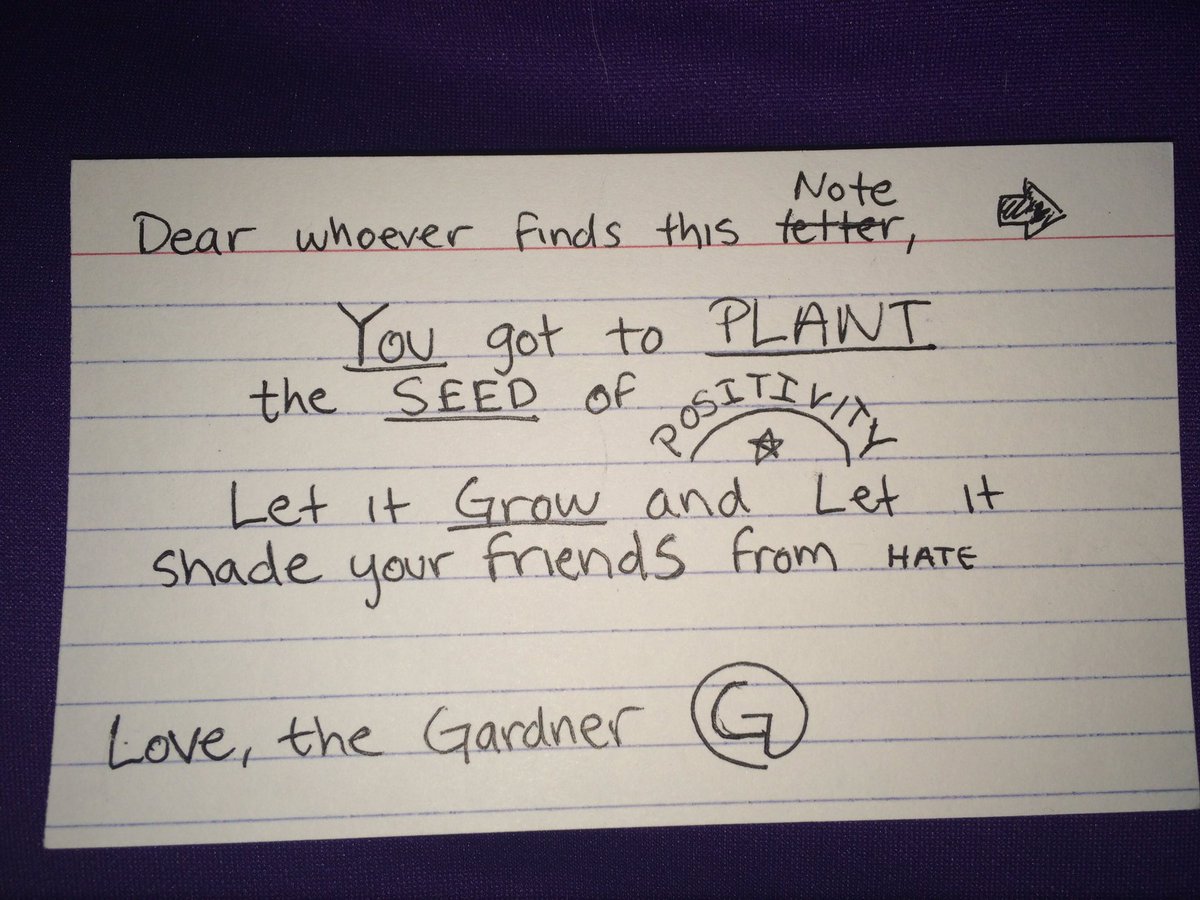 Dear whoever finds this letter, Note
You got to PLANT
the SEED of POSITIVITY
Let it Grow and Let it
shade your friends from HATE
Love, the Gardner G